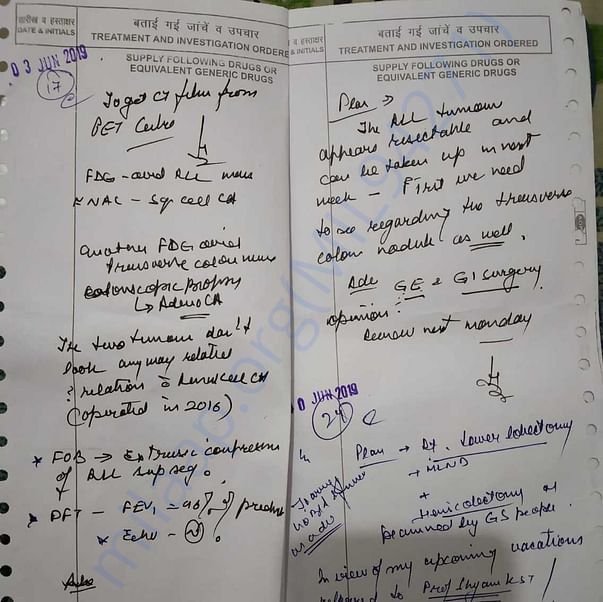 तारीख व हस्ताक्षर
DATE & INITIALS
बताई गई जांचें व उपचार
TREATMENT AND INVESTIGATION ORDERE
SUPPLY FOLLOWING DRUGS OR
EQUIVALENT GENERIC DRUGS
03 JUN 2019
17
To get CT film from
PET Centre
FDG-avid RLL mass
FNAC - Sq cell CA
another FDG avid
transverse colon mass
colonoscopic biopsy
↳ Adeno CA
The two tumour don't
look anyway related
? relation c̄ Renal cell CA
(operated in 2016)
* FOB → Extrinsic compression
of RLL sup seg.
* PFT - FEV1 - 98% of predic
* Echo - N.
Adv
व हस्ताक्षर
& INITIALS
बताई गई जांचें व उपचार
TREATMENT AND INVESTIGATION ORDERED
SUPPLY FOLLOWING DRUGS OR
EQUIVALENT GENERIC DRUGS
Plan →
The RLL tumour
appears resectable and
can be taken up in next
week - First we need
to see regarding the transverse
colon nodule as well.
Adv GE & GI surgery
opinion.
Review next monday
0 JUN 2019
24
Plan → Rt. Lower lobectomy
+ MLND
+
Hemicolectomy as
planned by GS people.
In view of my upcoming vacations
to Prof Shyam KST